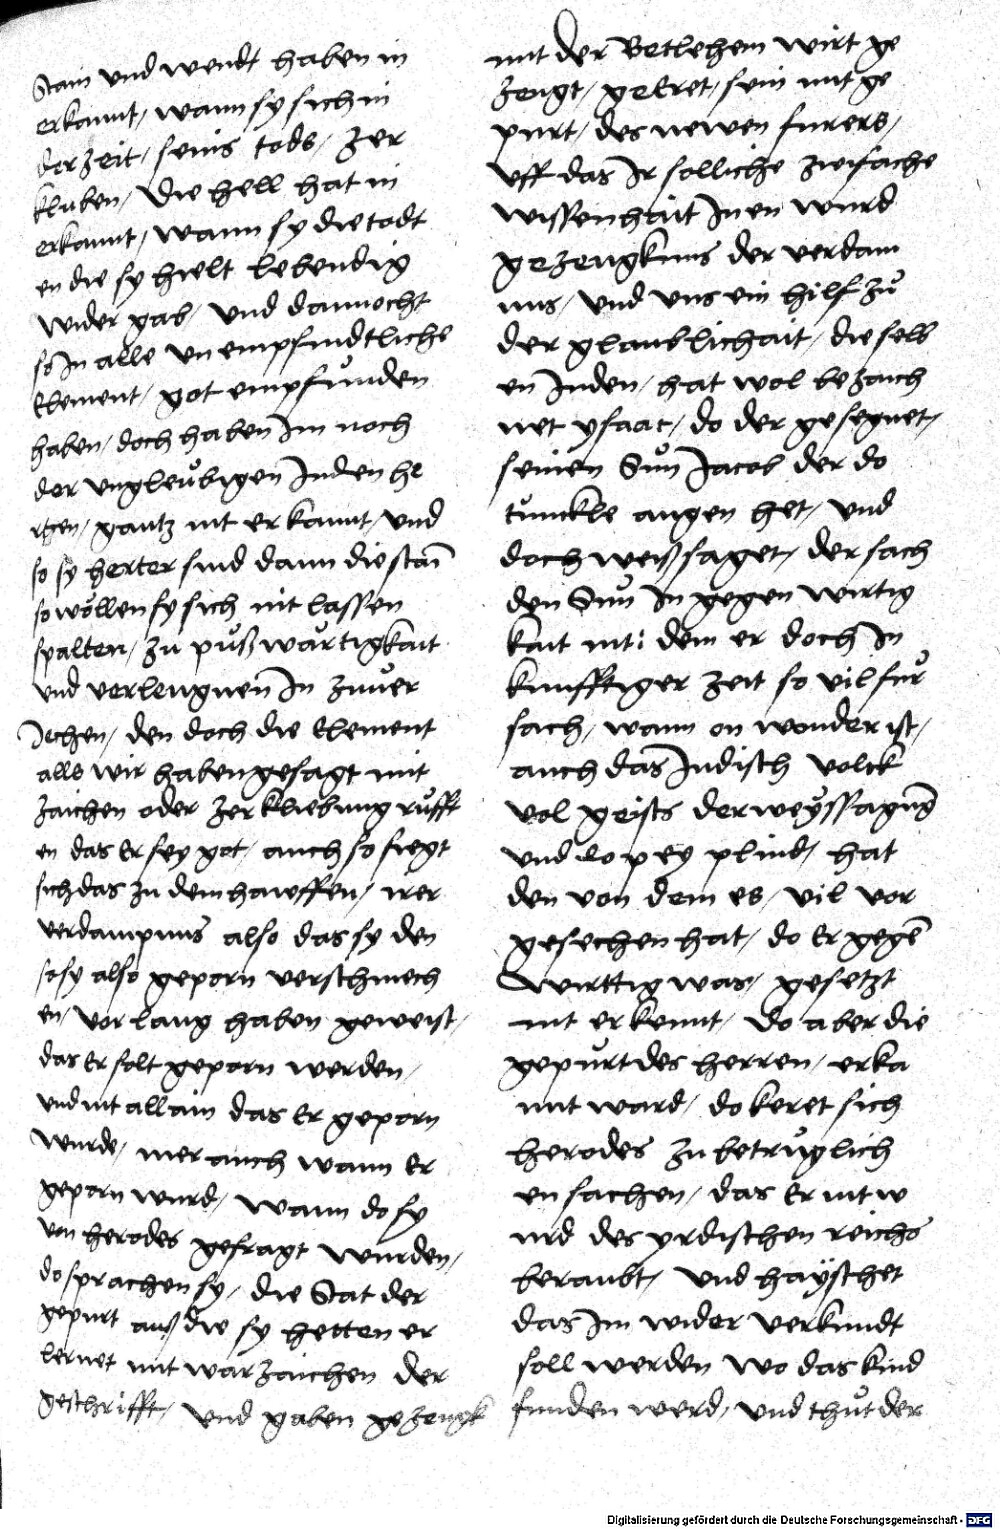 Stain und wendt haben in
erkannt / wann sy sich in
der zeit / seins tods / zer
kluben / Die hell hat in
erkannt / wann sy die todt
en die sy hielt lebendig
wider gab / und dannocht
so In alle un empfindtliche
Element / got empfunden
haben / doch haben Im noch
der ungleůbigen Juden he
rtzen / gantz nit erkannt / und
so sy herter sind dann die stain
so wőllen sy sich nit lassen
spalten / zu půßwärtigkait
und verlengnen In zuver
Jechen / den doch die Element
alls wir haben gesagt mit
zaichen oder zerkliebung růfft
en das Er sey got / auch so fiegt
sich das zu dem hawffen / irer
verdampnuns also das sy den
so sy also geporn verschmech
en / vor lang haben geweist /
das Er solt geporn werden /
und nit allain das Er geporn
wurde / mer auch wann Er
geporn wurd / wann do sy
von herodes gefragt wurden /
do sprachen sy / die Stat der
gepurt auß die sy hetten er
lernet mit warzaichen der
geschrifft / und gaben gezengk
mit der Betlehem wirt ge
zengt / geEret / sein mit ge
purt / des newen furers /
uff das Ir solliche zwifache
wissenhait Inen wurd
gezengknus der verdam
nus / und uns ein hilf zů
der glaublichait / die selb
en Juden / hat wol bezaich
net ysaac / do der gesegnet /
seinen Sůn Jacob der do
tůnckle augen het / und
doch weissaget / der sach
den Sůn In gegen wirtig
kait nit : dem er doch In
kunfftiger zeit so vil für
sach / wann on wonder ist /
auch das Judisch volck
vol geists der weyssagung
und do pey plind / hat
den von dem es / vil vor
gesechen hat / do Er gegen
wirttig was / gesetzt
nit erkennt / Do aber die
gepůrt des herren / erka
nnt ward / do keret sich
herodes zu betrůglich
en sachen / das Er nit w
urd des yrdischen reichs
beraubt / und hayschet
das Im wider verkundt
soll werden wo das kind
funden werd / und thůt der
Digitalisierung gefördert durch die Deutsche Forschungsgemeinschaft - DFG